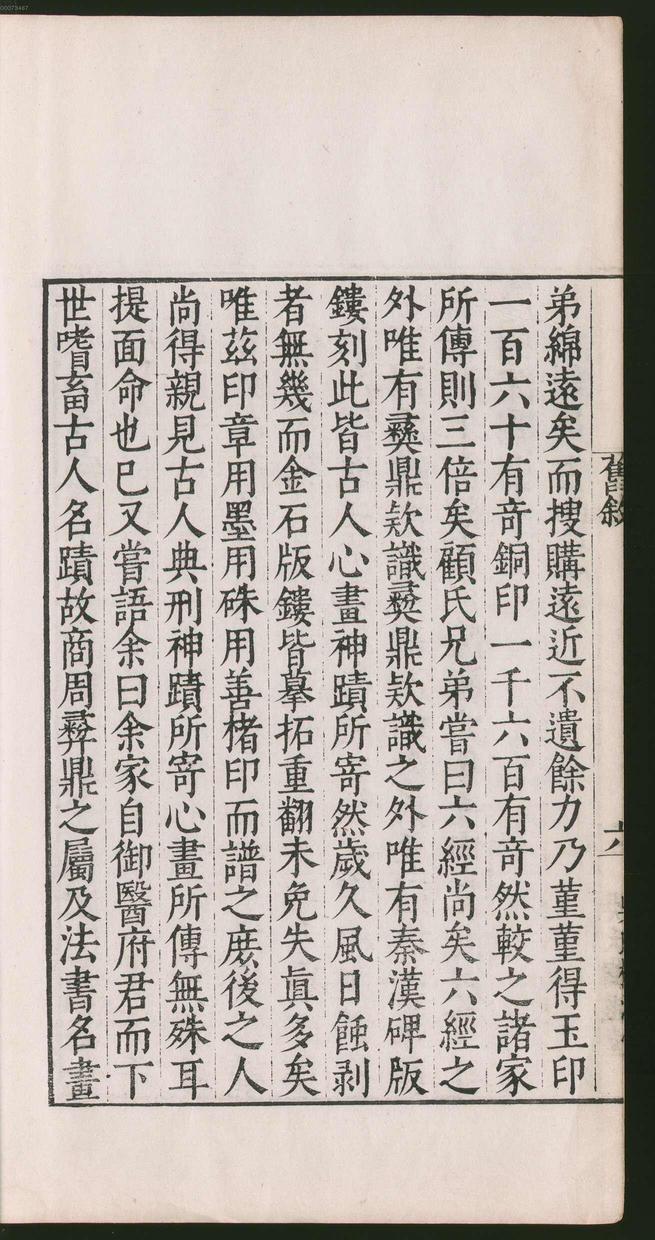 00073467
舊敘
六
弟綿遠矣而搜購遠近不遺餘力乃菫菫得玉印
一百六十有竒銅印一千六百有竒然較之諸家
所傳則三倍矣顧氏兄弟嘗曰六經尚矣六經之
外唯有彝鼎欵識彝鼎欵識之外唯有秦漢碑版
鏤刻此皆古人心畫神蹟所寄然歲久風日蝕剥
者無幾而金石版鏤皆摹拓重翻未免失眞多矣
唯茲印章用墨用硃用善楮印而譜之庶後之人
尚得親見古人典刑神蹟所寄心畫所傳無殊耳
提面命也已又嘗語余曰余家自御醫府君而下
世嗜畜古人名蹟故商周彛鼎之屬及法書名畫